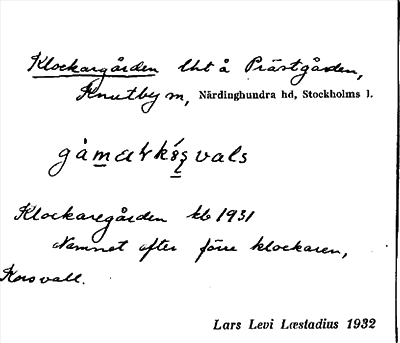 Klockargården lht å Prästgården,
Knutby sn, Närdinghundra hd, Stockholms l.
Klockaregården kb 1931
Namnet efter förre klockaren,
Korsvall.
Lars Levi Læstadius 1932